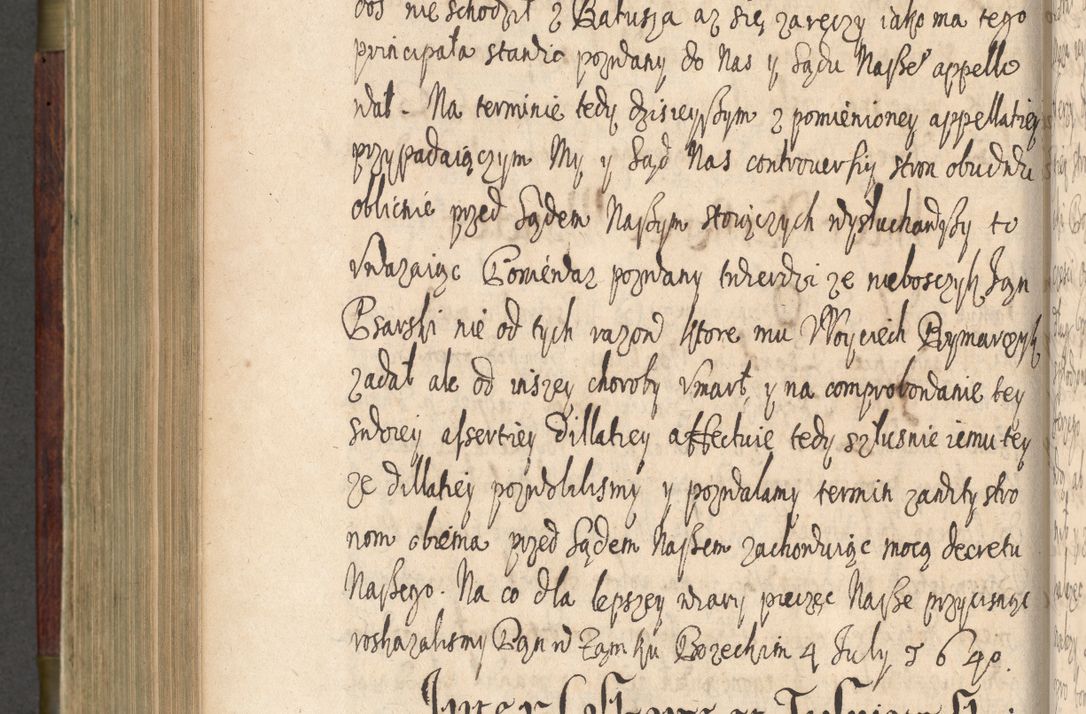 doś nie schodził z Ratusza aż się zaręczy iako ma tego
principała stawic pozwany do Nas y Sądu Naszeº appello
wał. Na terminie tedy dzisieyszym z pomienioney appellatiey
przypadaiączym My y Sąd Nas controuersiy stron obudwu
oblicnie przed Sądem Naszym stoiączych wysłuchawszy to
vwazaiąc Pomiendaz pozwany twierdzi ze nieboszczyk Jan
Psarski nie od tych razow ktore mu Woyciech Rymarczyk
zadał ale od inszey choroby vmarł, y na comprobowanie tey
swoiey assertiey dillatiey affectuie tedy szlusnie iemu tey
ze dillatiey pozwolilismy y pozwalamy termin zawity stro
nom obiema przed Sądem Naszem zachowuiąc mocą decretu
Naszego. Na co dla lepszey wiary pieczęc Nasze przycisnąc
roskazalismy Dan w Zamku Bozechim 4 July 1640.
Inter